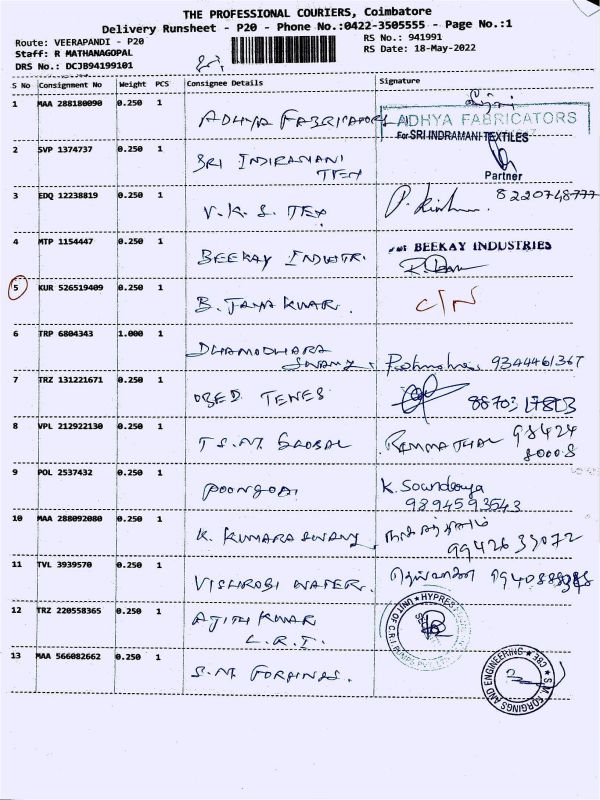 THE PROFESSIONAL COURIERS, Coimbatore
Delivery Runsheet - P20 - Phone No.:0422-3505555 - Page No.:1
Route: VEERAPANDI - P20
RS No.: 941991
Staff: R MATHANAGOPAL
RS Date: 18-May-2022
DRS No.: DCJB94199101
S No Consignment No Weight PCS Consignee Details Signature
1 MAA 288180090 0.250 1 ADHYA FABRICATORS
ADHYA FABRICATORS
For SRI INDRAMANI TEXTILES
2 SVP 1374737 0.250 1 SRI INDIRAMANI
TEX
Partner
3 EDQ 12238819 0.250 1 V.K.S. TEX 8220748777
4 MTP 1154447 0.250 1 BEEKAY INDUSTR. For BEEKAY INDUSTRIES
5 KUR 526519409 0.250 1 B. JAYA KUMAR. C/N
6 TRP 6804343 1.000 1 DHAMODHARA
SWAMY 9344461367
7 TRZ 131221671 0.250 1 OBED TENES
8 VPL 212922130 0.250 1 T.S.M. GLOBAL RAMMATHAL 98424
80008
9 POL 2537432 0.250 1 POONGODI K. Soundarya
9894593543
10 MAA 288092080 0.250 1 K. KUMARASWAMY
9942633072
11 TVL 3939570 0.250 1 WATER.
12 TRZ 220558365 0.250 1 AJITH KUMAR
C.R.I.
UNIT OF C.R.I PUMPS PVT. LTD ★ HYPRES
13 MAA 566082662 0.250 1 S.M. FORGINGS.
★ S.M. FORGINGS AND ENGINEERING ★ CBE